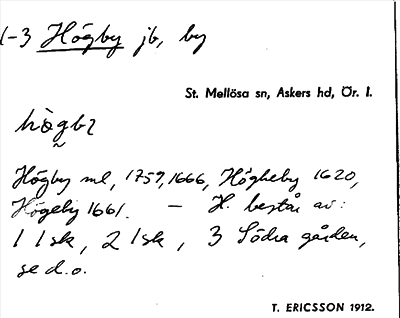 1-3 Högby jb, by
St. Mellösa sn, Askers hd, Ör. l.
hògbz
Högby ml, 1759, 1666, Högheby 1620,
Högeby 1661. — H. består av:
1 1sk, 2 1sk, 3 Södra gården,
se d.o.
T. ERICSSON 1912.